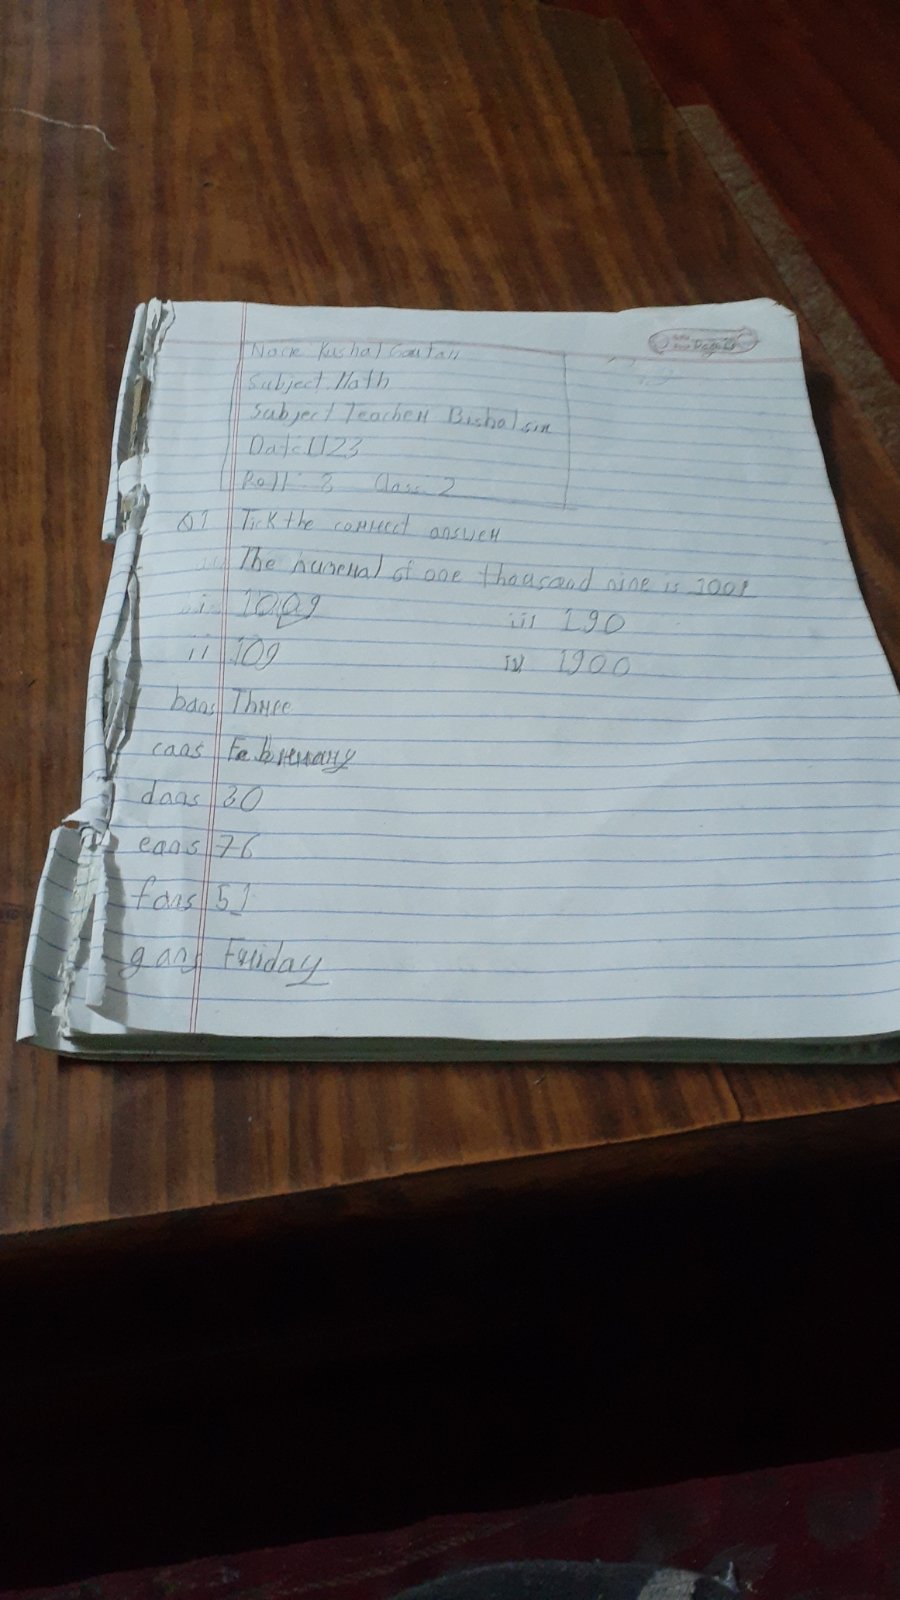 Name Kushal Gautam
Subject Math
Subject Teacher Bishal sir
Date 1123
Roll : 8 Class 2
Q1 Tick the correct answer
The numeral of one thousand nine is 1009
i 1009 iii 190
ii 109 iv 1900
b ans Three
c ans February
d ans 30
e ans 76
f ans 51
g ans Friday